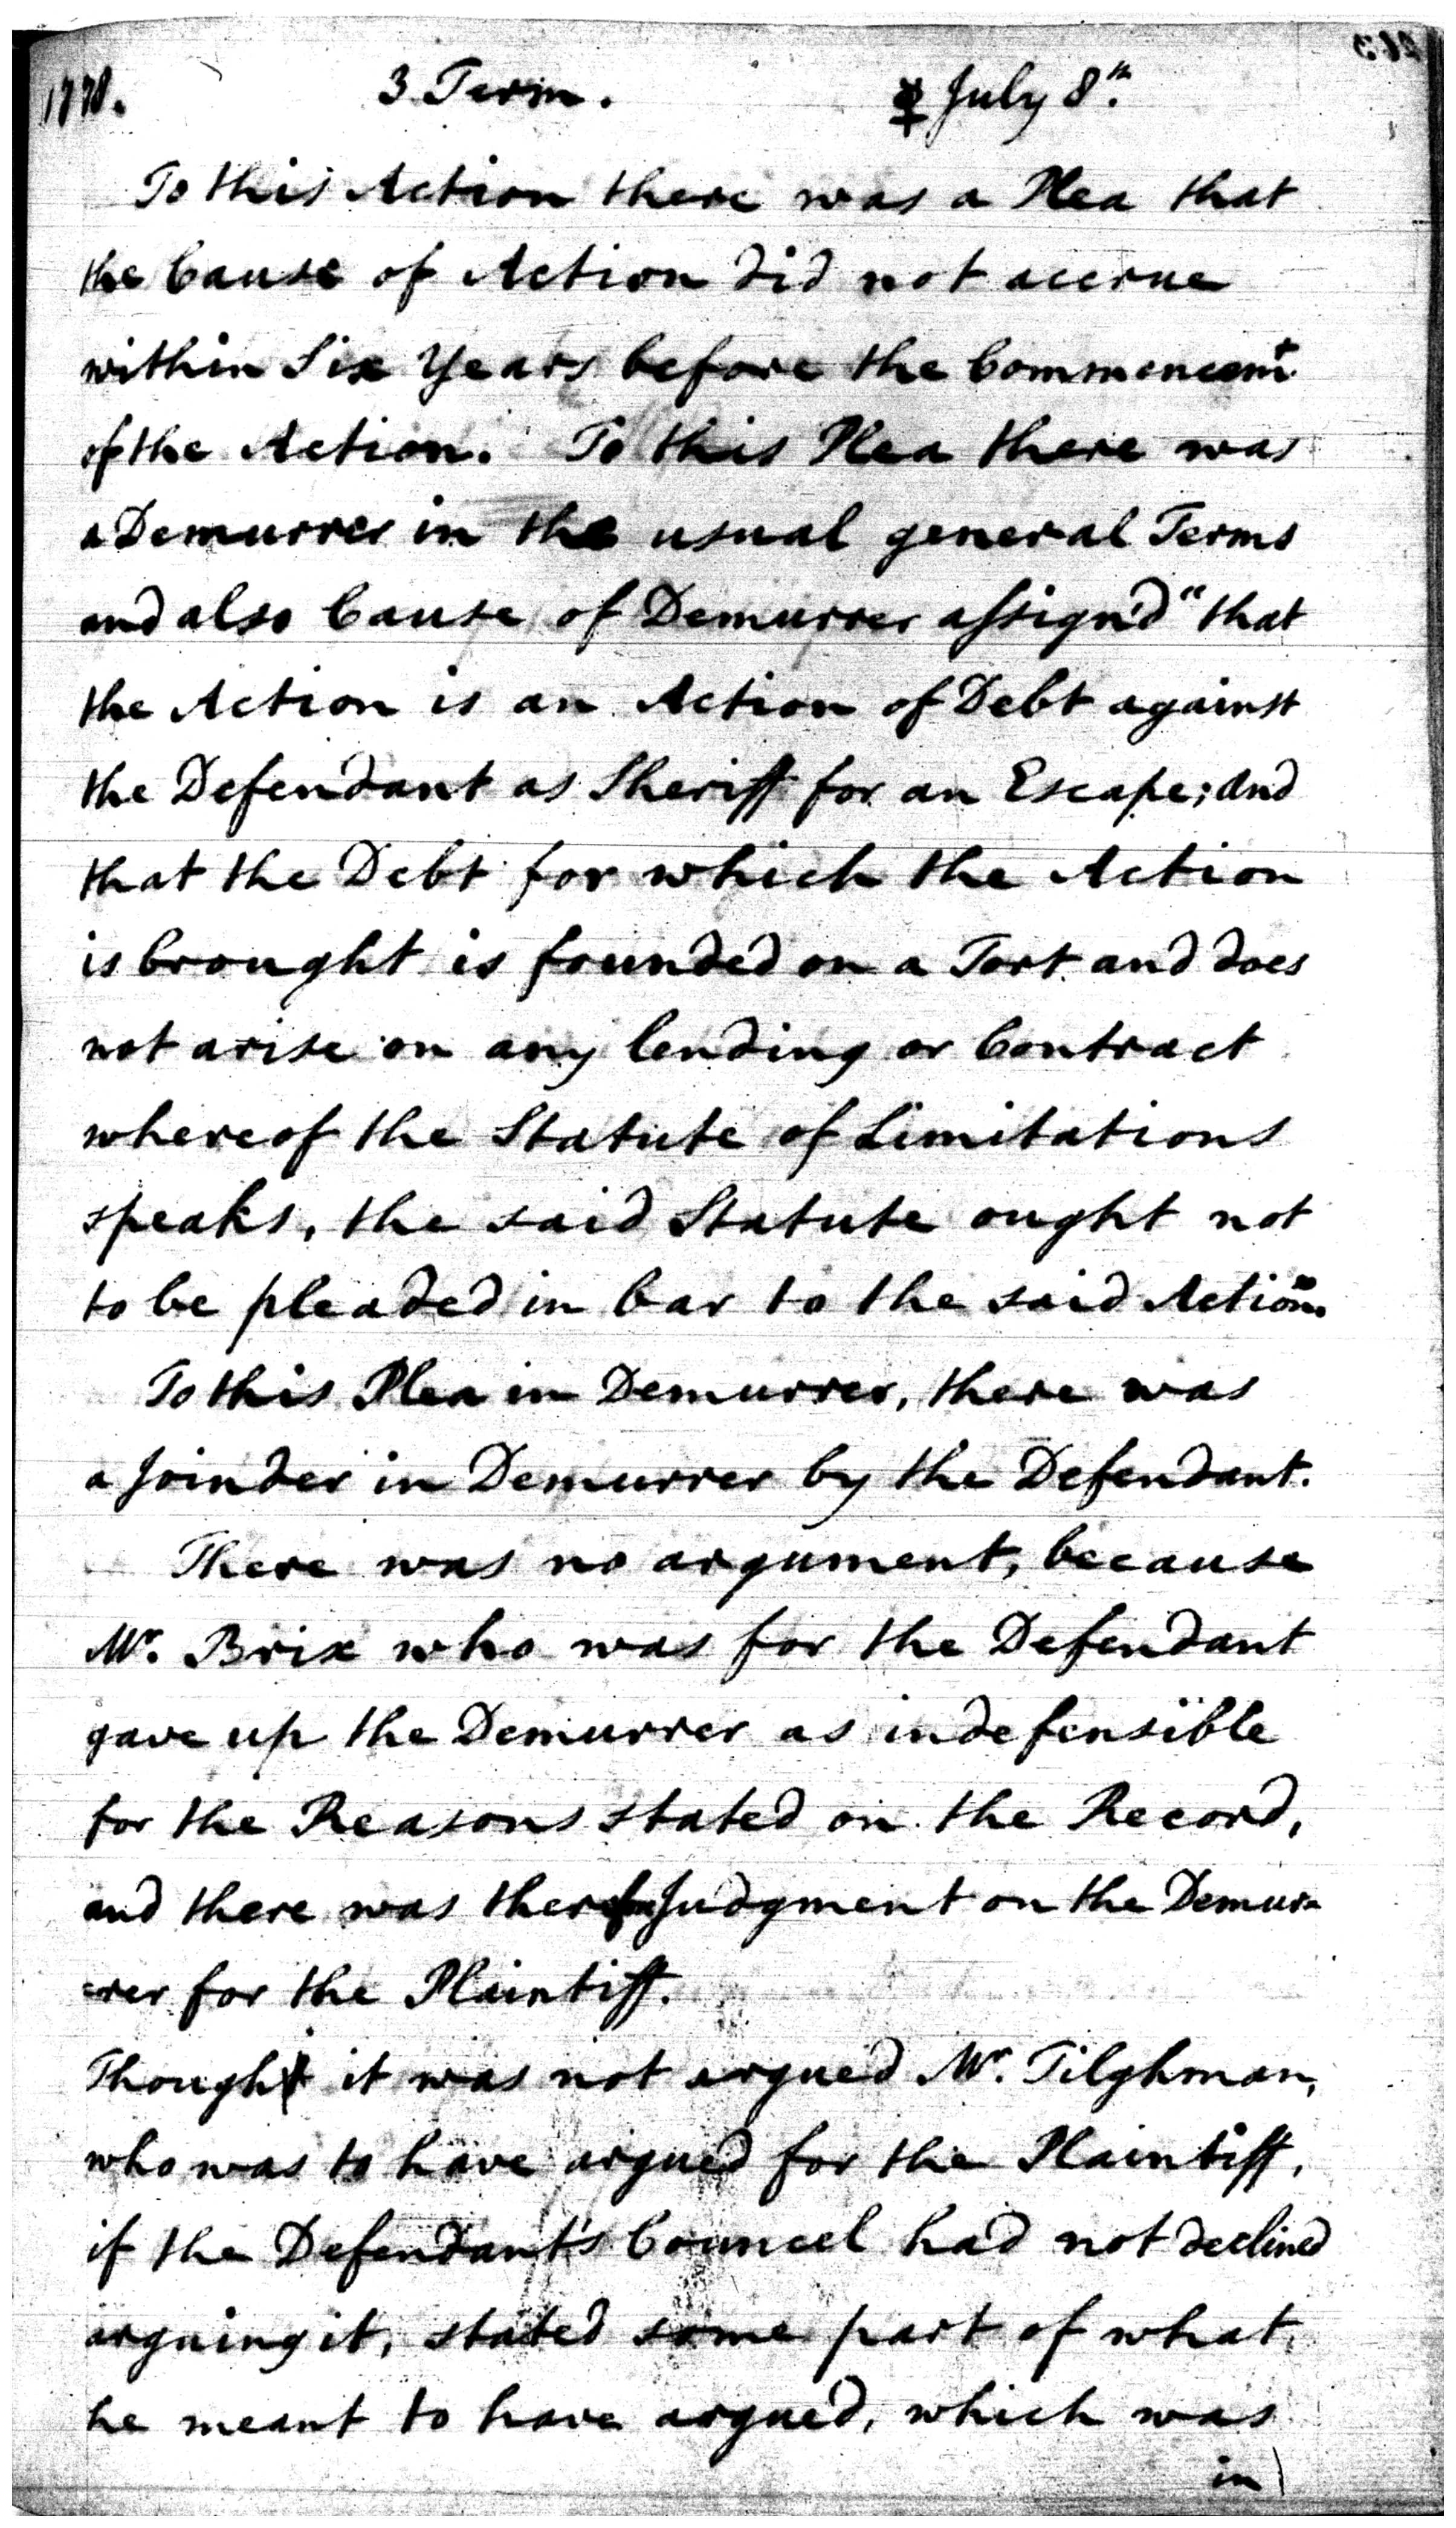 1770. 3 Term. ♀ July 8th.
To this Action there was a Plea that
the Cause of Action did not accrue
within Six Years before the Commencemt
of the Action. To this Plea there was
a Demurrer in the usual general Terms
and also Cause of Demurrer assign'd "that
the Action is an Action of Debt against
the Defendant as Sheriff for an Escape; And
that the Debt for which the Action
is brought is founded on a Tort and does
not arise on any lending or Contract
whereof the Statute of Limitations
speaks, the said Statute ought not
to be pleaded in bar to the said Action.
To this Plea in Demurrer, there was
a Joinder in Demurrer by the Defendant.
There was no argument, because
Mr. Brix who was for the Defendant
gave up the Demurrer as indefensible
for the Reasons stated on the Record,
and there was therefor Judgment on the Demur-
-rer for the Plaintiff.
Though it was not argued Mr. Tilghman,
who was to have argued for the Plaintiff,
if the Defendant's Councel had not declined
arguing it, stated some part of what
he meant to have argued, which was
in